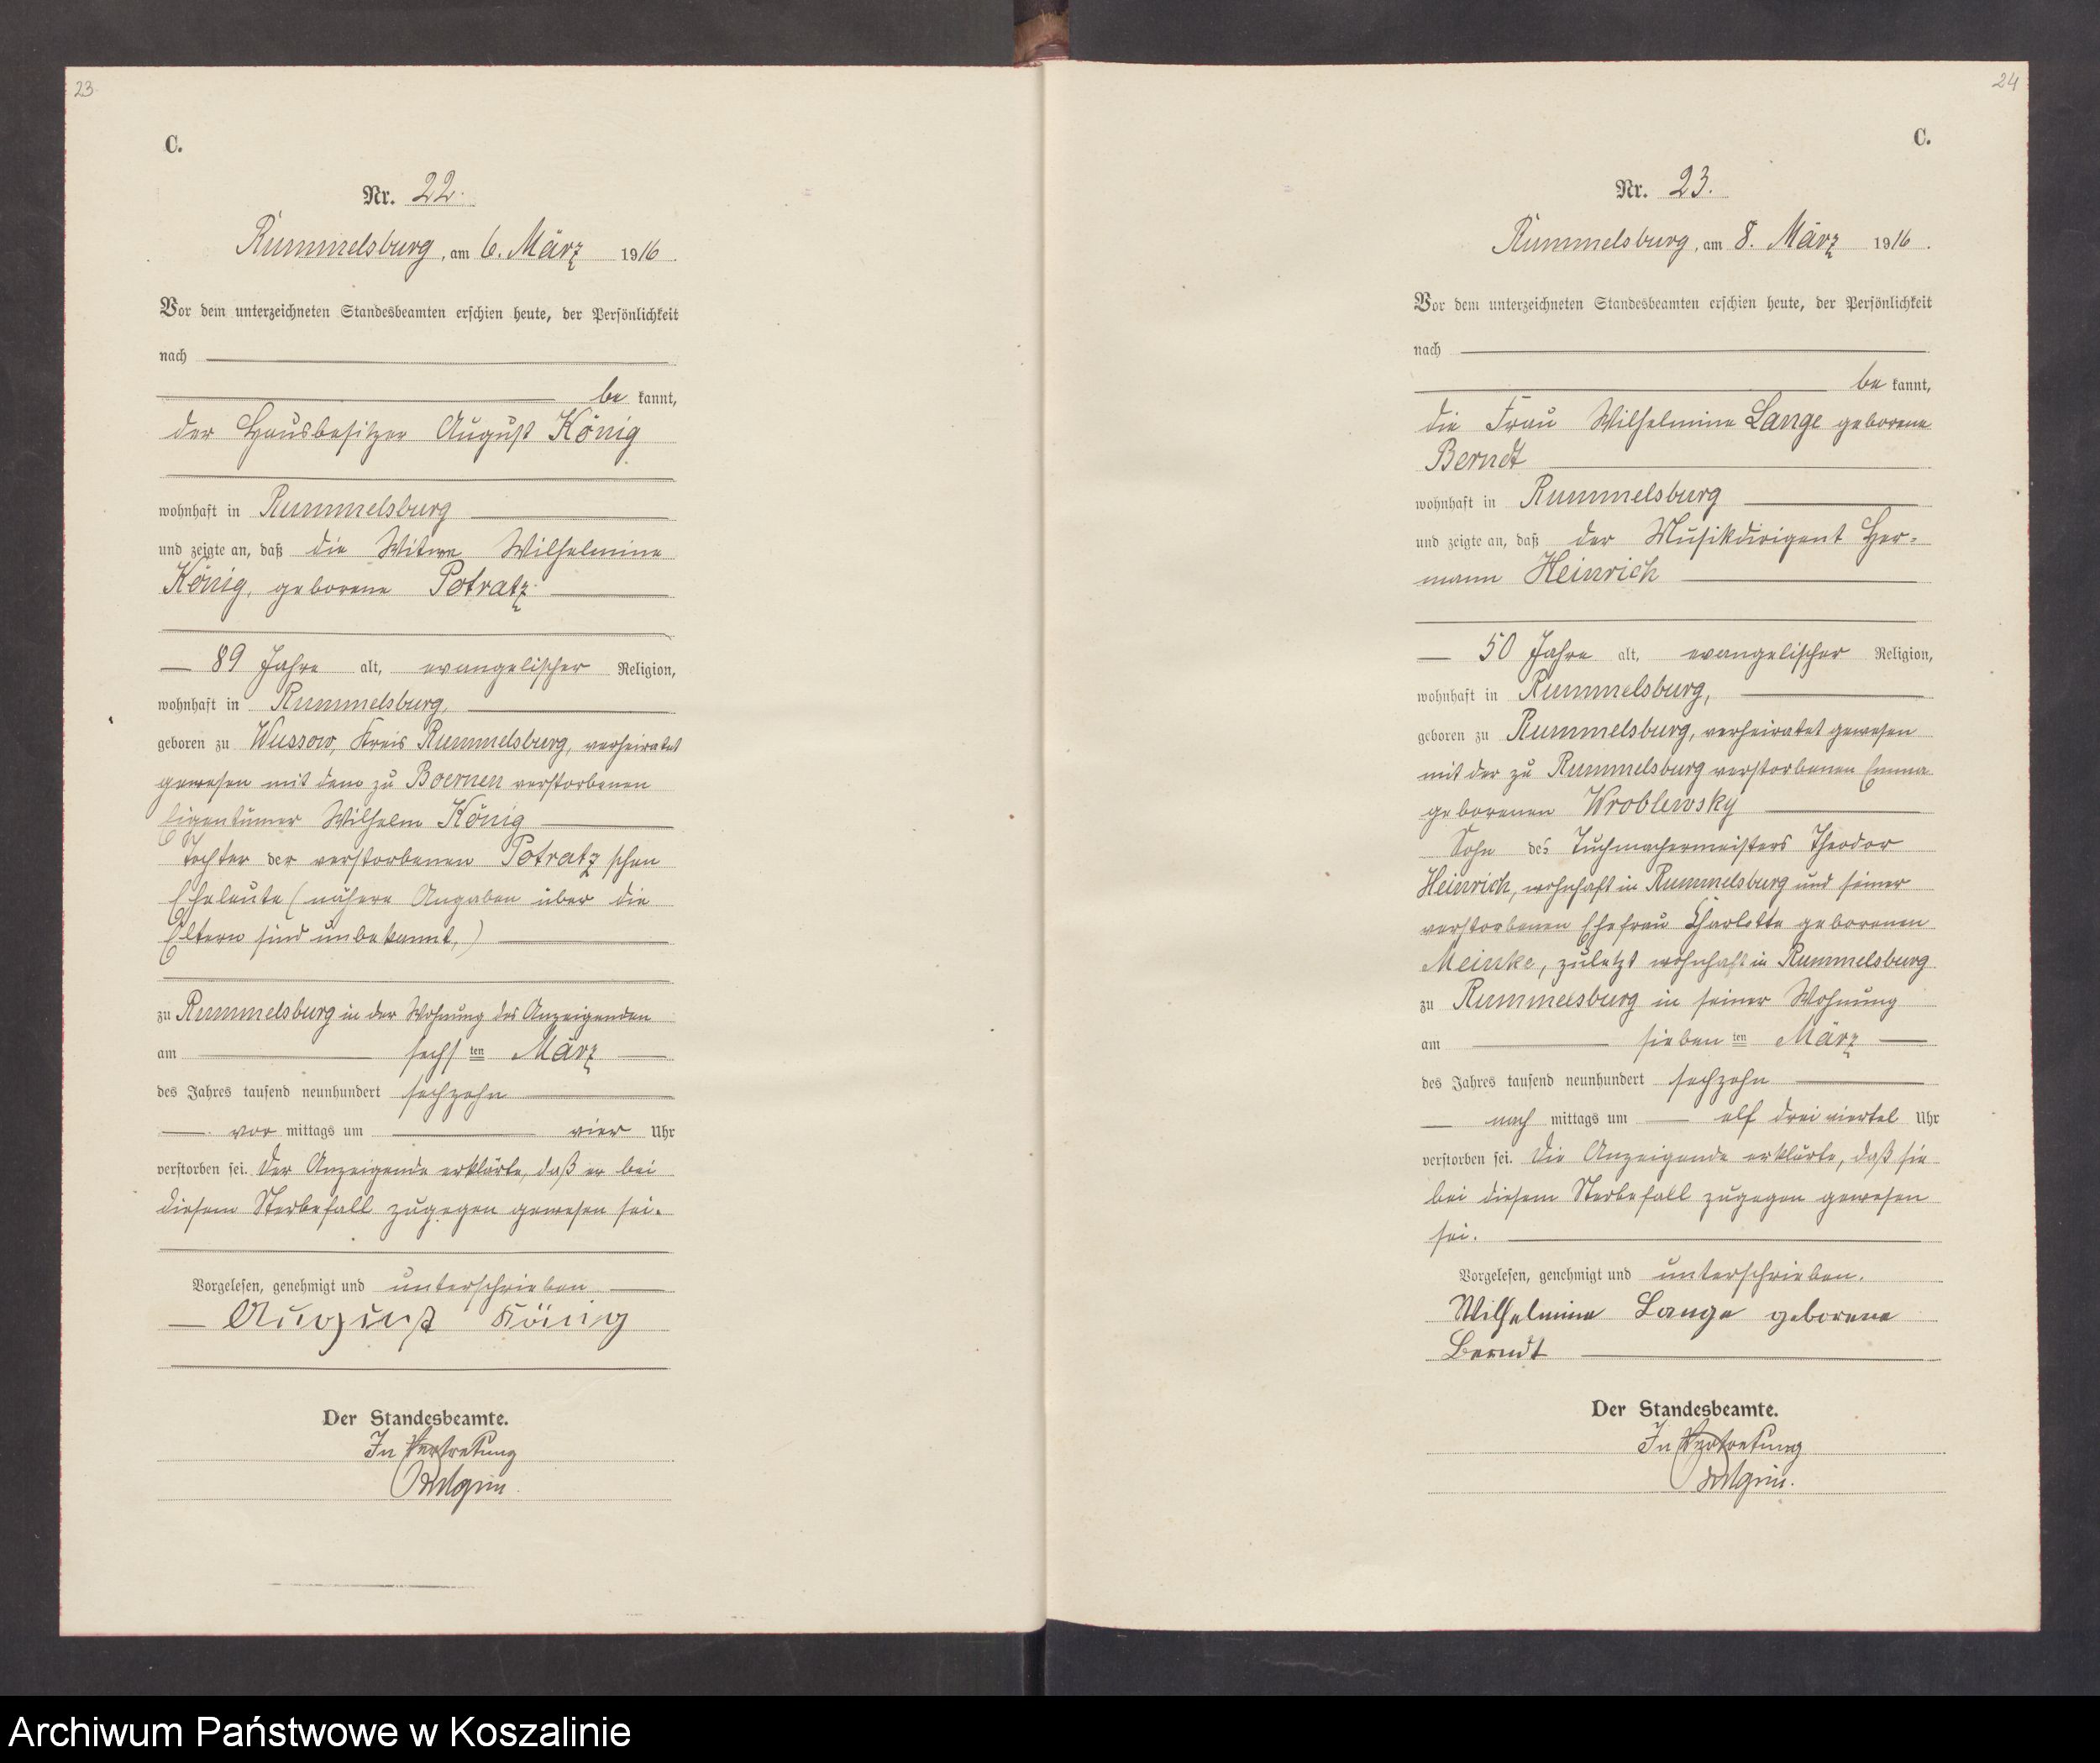 23
C.
Nr. 22.
Rummelsburg, am 6. März 1916.
Vor dem unterzeichneten Standesbeamten erschien heute, der Persönlichkeit
nach
be kannt,
der Hausbesitzer August König
wohnhaft in Rummelsburg
und zeigte an, daß die Witwe Wilhelmine
König, geborene Potratz
89 Jahre alt, evangelischer Religion,
wohnhaft in Rummelsburg,
geboren zu Wussow, Kreis Rummelsburg, verheiratet
gewesen mit dem zu Boernen verstorbenen
Eigentümer Wilhelm König
Tochter der verstorbenen Potratz'schen
Eheleute (nähere Angaben über die
Eltern sind unbekannt,)
zu Rummelsburg in der Wohnung des Anzeigenden
am sechs ten März
des Jahres tausend neunhundert sechzehn
vor mittags um vier Uhr
verstorben sei. Der Anzeigende erklärte, daß er bei
diesem Sterbefall zugegen gewesen sei.
Vorgelesen, genehmigt und unterschrieben
August König
Der Standesbeamte.
In Vertretung
24
C.
Nr. 23.
Rummelsburg, am 8. März 1916.
Vor dem unterzeichneten Standesbeamten erschien heute, der Persönlichkeit
nach
be kannt,
die Frau Wilhelmine Lange geborene
Berndt
wohnhaft in Rummelsburg
und zeigte an, daß der Musikdirigent Her=
mann Heinrich
50 Jahre alt, evangelischer Religion,
wohnhaft in Rummelsburg,
geboren zu Rummelsburg, verheiratet gewesen
mit der zu Rummelsburg verstorbenen Emma
geborenen Wroblewsky
Sohn des Tuchmachermeisters Theodor
Heinrich, wohnhaft in Rummelsburg und seiner
verstorbenen Ehefrau Charlotte geborenen
Meinke, zuletzt wohnhaft in Rummelsburg
zu Rummelsburg in seiner Wohnung
am sieben ten März
des Jahres tausend neunhundert sechzehn
nach mittags um elf dreiviertel Uhr
verstorben sei. Die Anzeigende erklärte, daß sie
bei diesem Sterbefall zugegen gewesen
sei.
Vorgelesen, genehmigt und unterschrieben.
Wilhelmine Lange geborene
Berndt
Der Standesbeamte.
In Vertretung
Archiwum Państwowe w Koszalinie